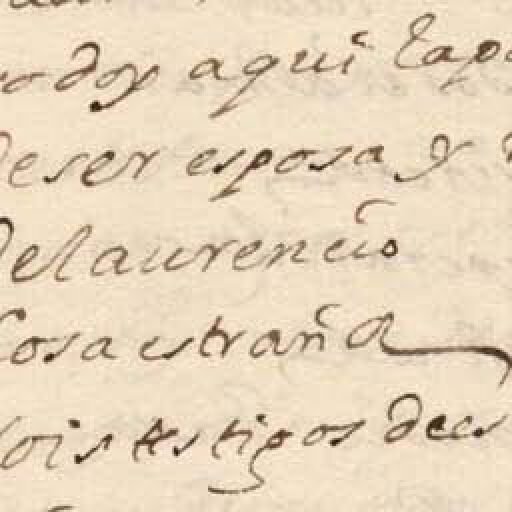 doy aqui lapa
deser esposa y
delaurencio
Cosa estraña
sois testigos dees